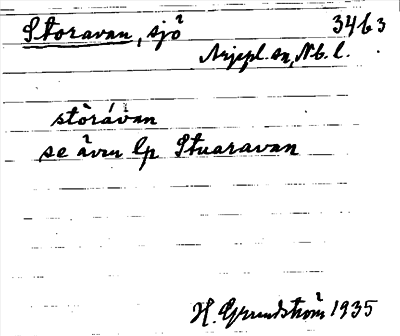 Storavan, sjö 3463
Arjepl. sn, Nb. l.
stòrávan
se även lp Stuaravan
H. Grundström 1935